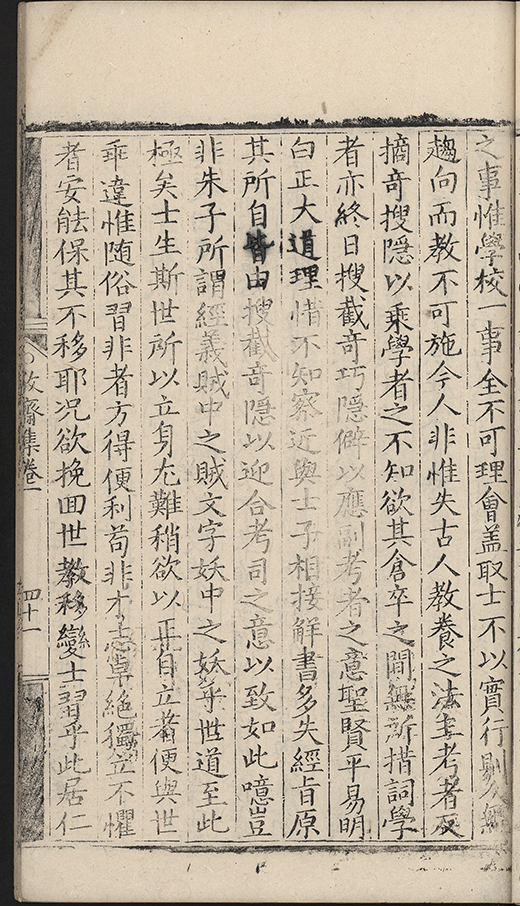 之事惟學校一事全不可理會盖取士不以實行剔
趨向而教不可施今人非惟失古人教養之法主考者反
摘奇搜隱以乘學者之不知欲其倉卒之間無所措詞學
者亦終日搜截奇巧隱僻以應副考者之意聖賢平易明
白正大道理惜不知察近與士子相接觧書多失經旨原
其所自皆由搜截奇隱以迎合考司之意以致如此噫豈
非朱子所謂經義賊中之賊文字妖中之妖乎世道至此
極矣士生斯世所以立身尤難稍欲以正自立者便與世
乖違惟随俗習非者方得便利苟非才志卓絶獨立不懼
者安能保其不移耶况欲挽囬世教移變士習乎此居仁
敬齋集卷一
四十一